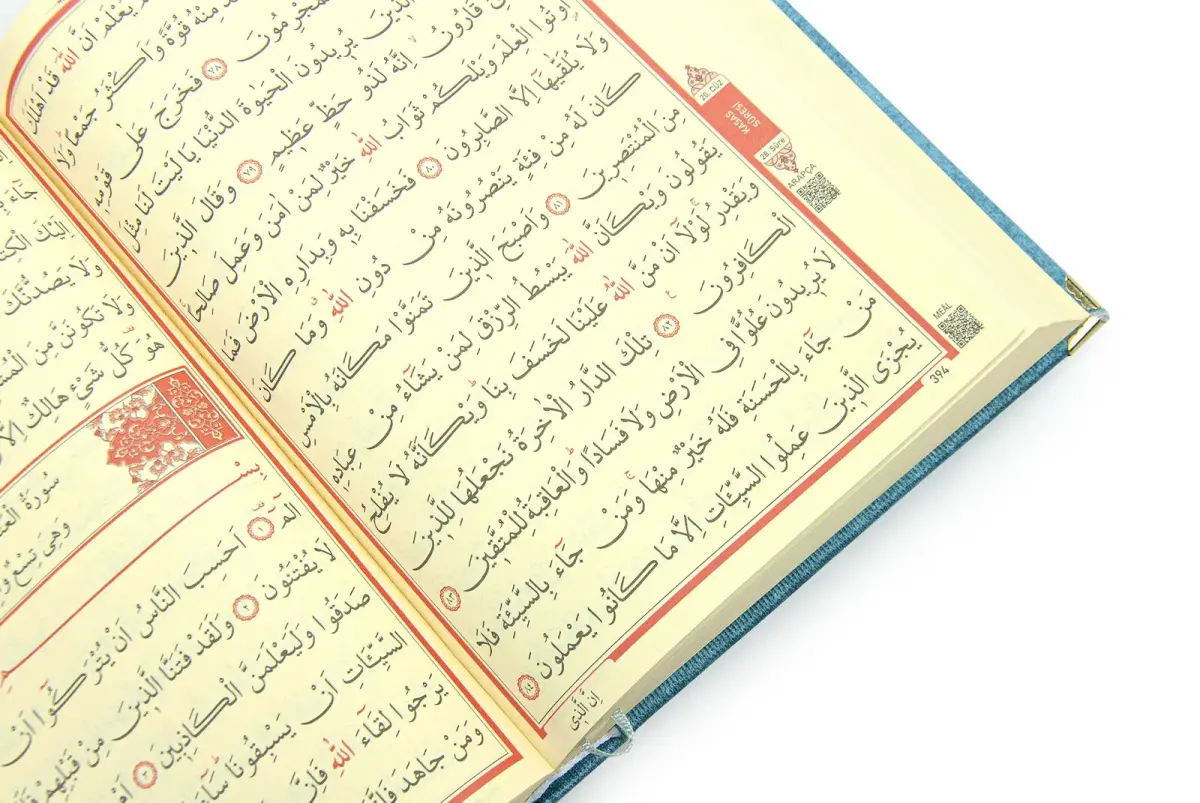 يَعْلَمْ اَنَّ اللّٰهَ قَدْ اَهْلَكَ
مِنْهُ قُوَّةً وَاَكْثَرُ جَمْعًا وَلَا
الْمُجْرِمُونَ ﴿٧٨﴾ فَخَرَجَ عَلٰى قَوْمِه۪
الَّذ۪ينَ يُر۪يدُونَ الْحَيٰوةَ الدُّنْيَا يَا لَيْتَ لَنَا مِثْلَ
قَارُونُ اِنَّهُ لَذُو حَظٍّ عَظ۪يمٍ ﴿٧٩﴾ وَقَالَ الَّذ۪ينَ
اُو۫تُوا الْعِلْمَ وَيْلَكُمْ ثَوَابُ اللّٰهِ خَيْرٌ لِمَنْ اٰمَنَ وَعَمِلَ صَالِحًا
وَلَا يُلَقّٰيهَٓا اِلَّا الصَّابِرُونَ ﴿٨٠﴾ فَخَسَفْنَا بِه۪ وَبِدَارِهِ الْاَرْضَ فَمَا
كَانَ لَهُ مِنْ فِئَةٍ يَنْصُرُونَهُ مِنْ دُونِ اللّٰهِۗ وَمَا كَانَ
مِنَ الْمُنْتَصِر۪ينَ ﴿٨١﴾ وَاَصْبَحَ الَّذ۪ينَ تَمَنَّوْا مَكَانَهُ بِالْاَمْسِ
يَقُولُونَ وَيْكَاَنَّ اللّٰهَ يَبْسُطُ الرِّزْقَ لِمَنْ يَشَٓاءُ مِنْ عِبَادِه۪
وَيَقْدِرُۚ لَوْلَٓا اَنْ مَنَّ اللّٰهُ عَلَيْنَا لَخَسَفَ بِنَاۜ وَيْكَاَنَّهُ لَا يُفْلِحُ
الْكَافِرُونَ ﴿٨٢﴾ تِلْكَ الدَّارُ الْاٰخِرَةُ نَجْعَلُهَا لِلَّذ۪ينَ
لَا يُر۪يدُونَ عُلُوًّا فِي الْاَرْضِ وَلَا فَسَادًاۜ وَالْعَاقِبَةُ لِلْمُتَّق۪ينَ ﴿٨٣﴾
مَنْ جَٓاءَ بِالْحَسَنَةِ فَلَهُ خَيْرٌ مِنْهَاۚ وَمَنْ جَٓاءَ بِالسَّيِّئَةِ فَلَا
يُجْزَى الَّذ۪ينَ عَمِلُوا السَّيِّـَٔاتِ اِلَّا مَا كَانُوا يَعْمَلُونَ ﴿٨٤﴾
اِنَّ الَّذ۪ي
394
20. CÜZ
KASAS SÛRESİ
28. Sûre
ARAPÇA
MEÂL
اِلَيْكَ
وَلَا يَصُدُّنَّكَ
وَلَا تَكُونَنَّ مِنَ
هُوَ۠ كُلُّ شَيْءٍ هَالِكٌ اِلَّا
سُورَةُ
وَهِيَ تِسْعٌ
الٓمٓ ﴿١﴾ اَحَسِبَ النَّاسُ اَنْ يُتْرَكُٓوا اَنْ
لَا يُفْتَنُونَ ﴿٢﴾ وَلَقَدْ فَتَنَّا الَّذ۪ينَ مِنْ قَبْلِهِمْ
صَدَقُوا وَلَيَعْلَمَنَّ الْكَاذِب۪ينَ ﴿٣﴾ اَمْ
السَّيِّـَٔاتِ اَنْ يَسْبِقُونَاۜ سَٓاءَ
يَرْجُوا لِقَٓاءَ اللّٰهِ فَاِنَّ
وَمَنْ جَاهَدَ فَاِنَّمَا